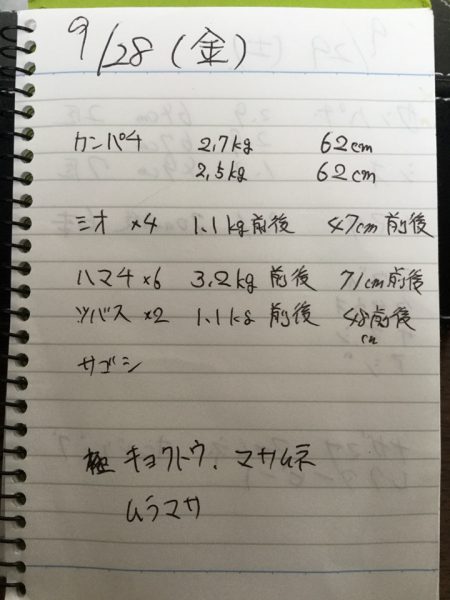 9/28(金)
カンパ4 2.7kg 62cm
2.5kg 62cm
ミオ ×4 1.1kg前後 47cm前後
ハマ4 ×6 3.2kg 前後 71cm前後
ツバス ×2 1.1kg 前後 48前後
cm
サゴシ
極 キョクトウ、マサムネ
ムラマサ